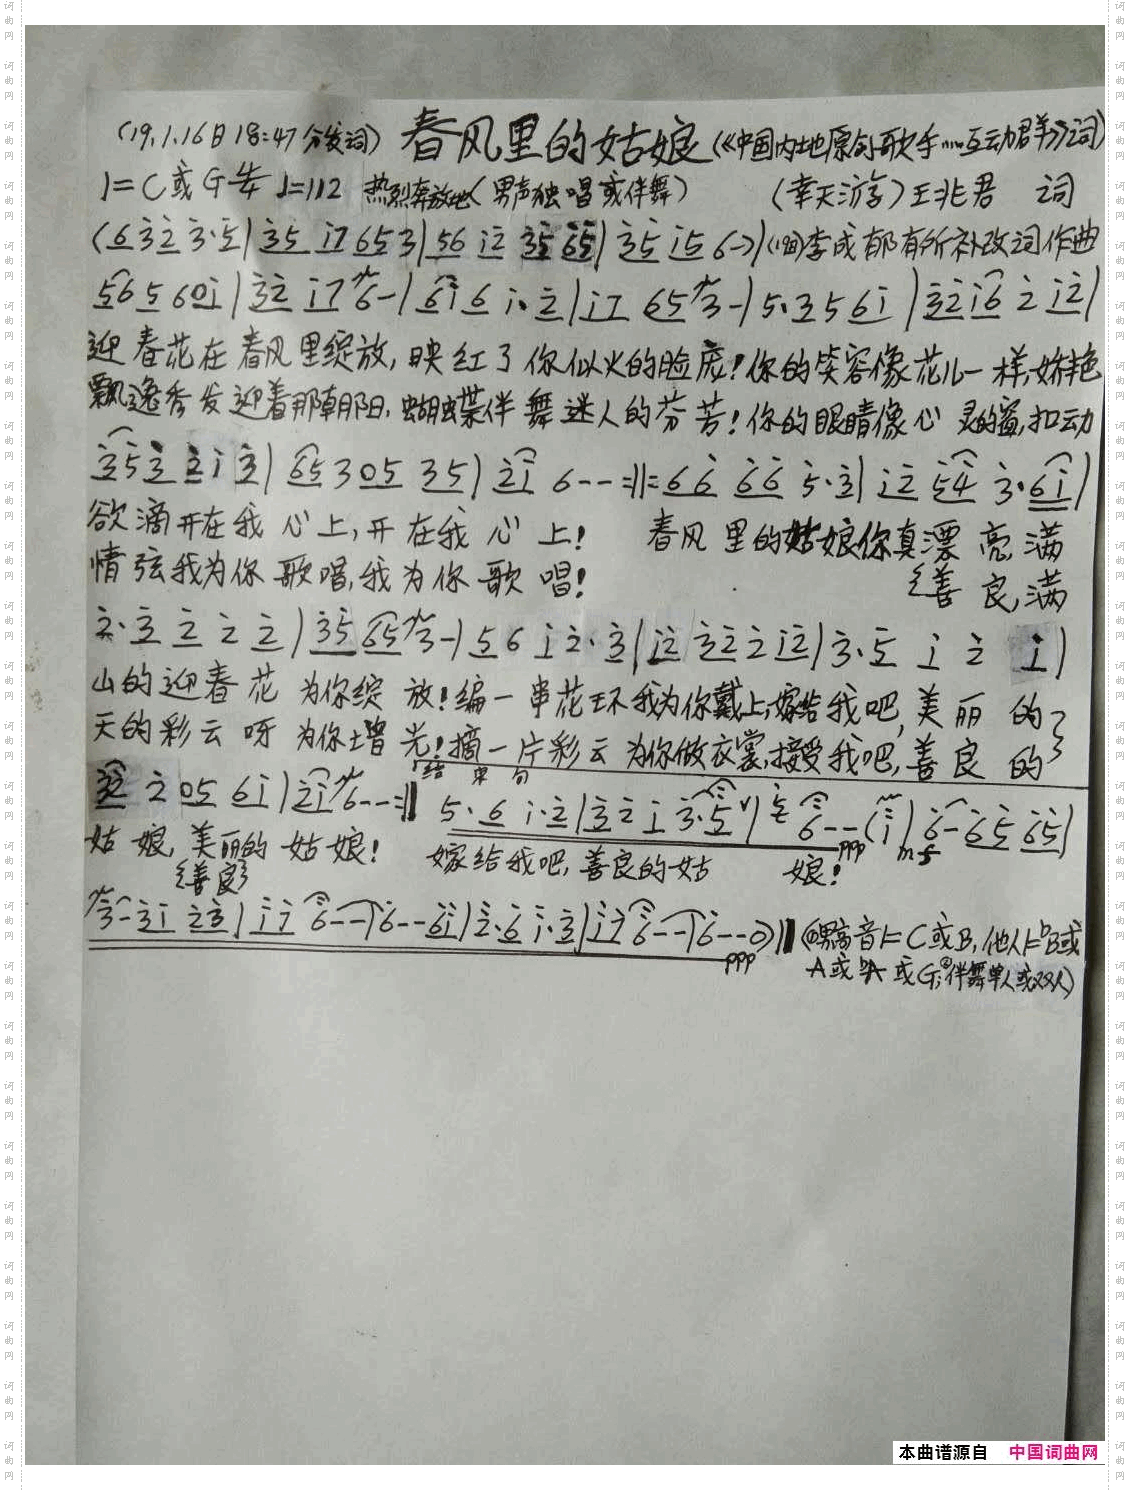 (19.1.16日18:47分发词) 春风里的姑娘 (《中国内地原创歌手……互动群》词)
1=C或G 4/4 ♩=112 热烈奔放地(男声独唱或伴舞) (幸天游)王兆君 词
(6 3 2 3·5| 35 17 65 3| 56 12 35 65| 35 15 6-)| 李成郁有所补改词作曲
56 5 6 01| 32 17 6-| 61 6 1·2| 17 65 3-| 5·3 5 61| 32 16 2 12|
迎春花在春风里绽放,映红了你似火的脸庞!你的笑容像花儿一样,娇艳
飘逸秀发迎着那朝阳,蝴蝶伴舞迷人的芬芳!你的眼睛像心灵的窗,扣动
35 3 2 1 3| 65 3 05 35| 21 6--:||: 66 66 5·3| 12 54 3·61|
欲滴开在我心上,开在我心上! 春风里的姑娘你真漂亮,满
情弦我为你歌唱,我为你歌唱! 善良,满
2·3 2 2 2| 35 65 3-| 5 6 1 2·3| 12 32 2 12| 3·5 1 2 1|
山的迎春花为你绽放!编一串花环我为你戴上,嫁给我吧,美丽的
天的彩云呀为你增光!摘一片彩云为你做衣裳,接受我吧,善良的
结束句
32 2 05 61| 21 6--:|| 5·6 1·2| 32 1 3·5| 6--( 1| 6-65 65|
姑娘,美丽的姑娘! 嫁给我吧,善良的姑娘!
善良
ppp mf
3-31 23| 17 6--| 6--61| 2·6 1·3| 17 6--| 6--0)|| (①男高音1=C或B,他人1=♭B或
ppp A或♭A或G;②伴舞单人或双人)
本曲谱源自 中国词曲网
词曲网